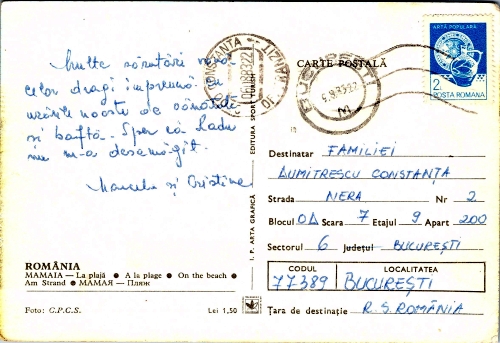 Multe sărutări vouă
celor dragi împreună cu
urările noastre de sănătate
și baftă. Sper că Radu
nu m-a dezamăgit.
Marcela și Cristine
ROMÂNIA
MAMAIA — La plajă ● A la plage ● On the beach ●
Am Strand ● МАМАЯ — Пляж
Foto: C.P.C.S.
Lei 1,50
I. P. ARTA GRAFICĂ
EDITURA SPORT-TURISM
CONSTANȚA
TRANZIT
CARTE POȘTALĂ
BUCUREȘTI
ARTĂ POPULARĂ
2L
POSTA ROMANA
Destinatar FAMILIEI
DUMITRESCU CONSTANȚA
Strada NERA Nr 2
Blocul OΔ Scara 7 Etajul 9 Apart 200
Sectorul 6 Județul BUCUREȘTI
CODUL LOCALITATEA
77389 BUCUREȘTI
Țara de destinație R.S. ROMÂNIA